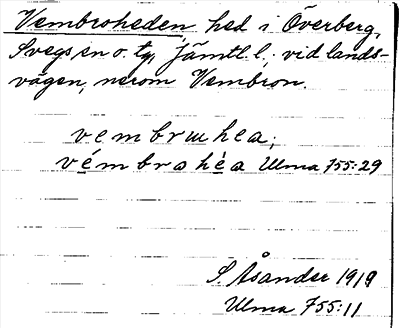 Vembroheden, hed i Överberg,
Svegs sn o. tg, Jämtl. l., vid lands-
vägen, nerom Vembron.
vembrωhea;
vémbrohèa Ulma 755:29
S. Åsander 1919
Ulma 755:11